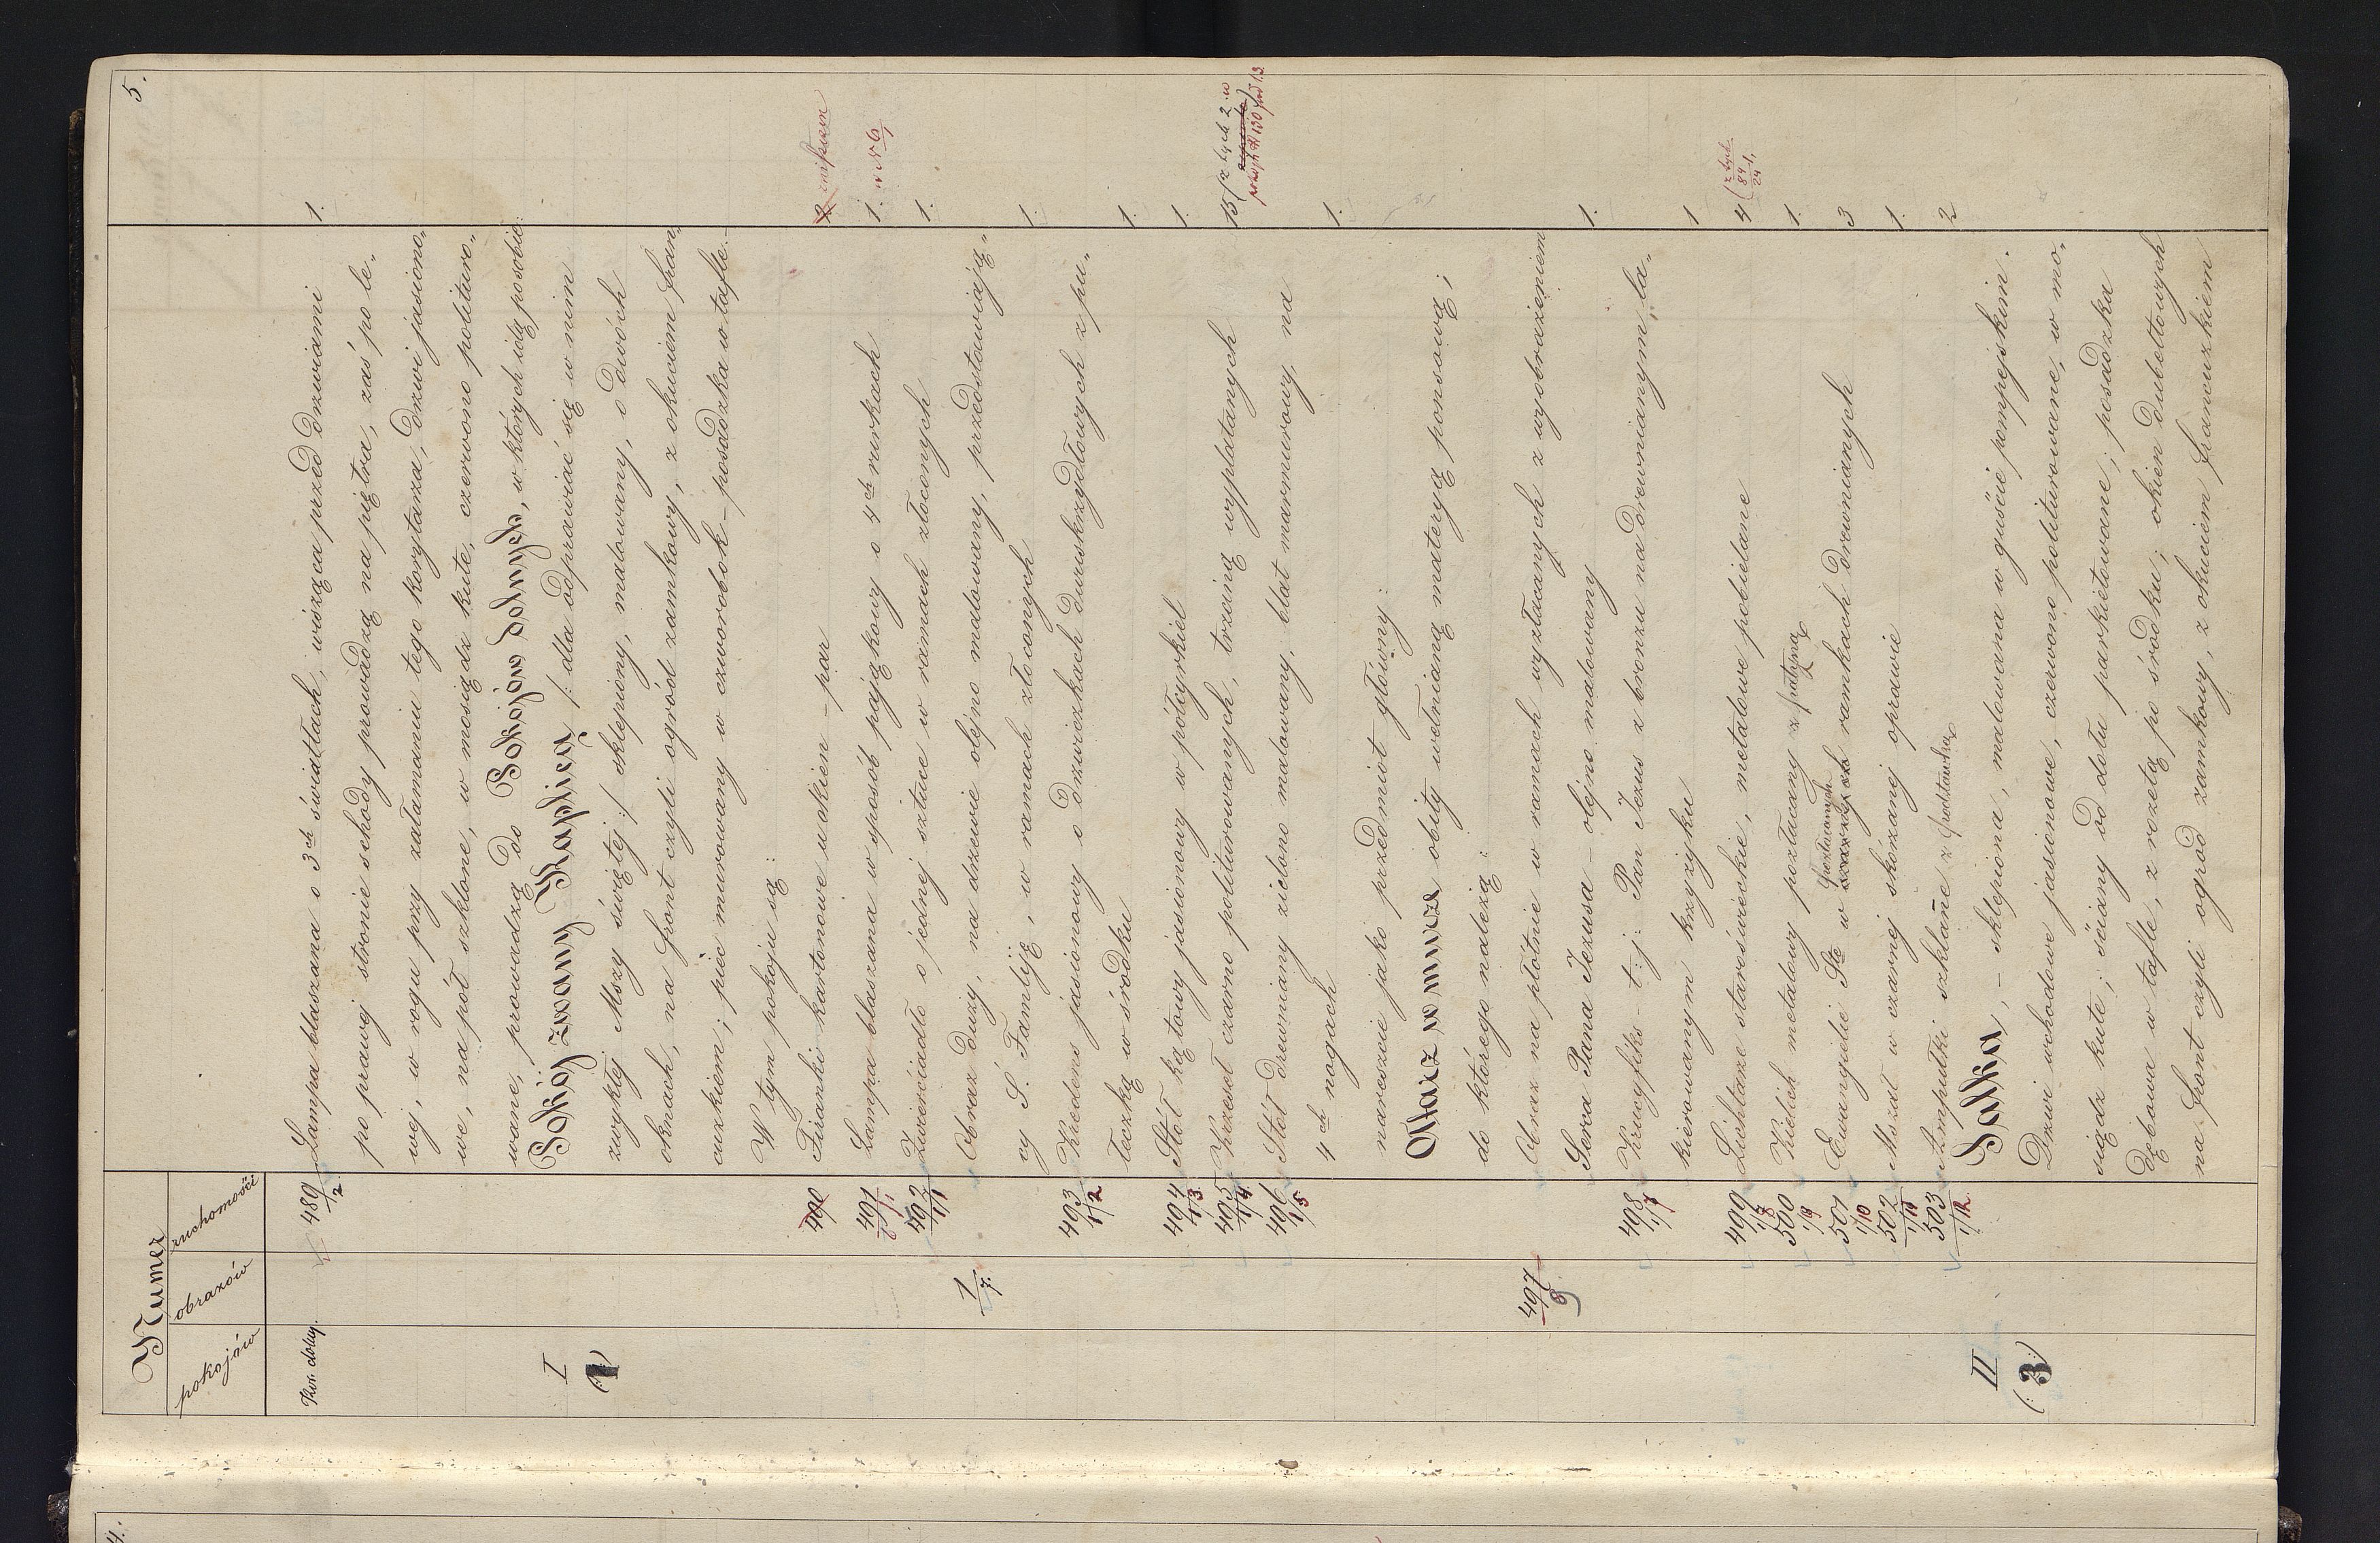 5.
Numer
pokojów obrazów ruchomości
Kor. dolny. 489/2 Lampa blaszana o 3ch światłach, wisząca przed drzwiami 1.
po prawej stronie schody prowadzą na piętra, zaś po le„
wej, w rogu przy załamaniu tego korytarza, drzwi jasiono„
we, na pół szklone, w mosiądz kute, czerwono politüro„
wane, prowadzą do Pokojów dolnych, w których idą posobie:
I Pokój zwany Kaplicą /: dla odprawiać się w nim
(1) zwykłej Mszy świętej :/ sklepiony, malowany, o dwóch
oknach, na front czyli ogród zamkowy, z okuciem fran„
cuzkiem; piec murowany w czworobok – posadzka w tafle. –
W tym pokoju są:
490 Firanki kartonowe u okien – par 2
491 Lampa blaszana w sposób pająkowy o 4ch rurkach 1.
492 1/1 Zwierciadło o jednej sztuce w ramach złoconych 1.
1/7. Obraz duży, na drzewie olejno malowany, przedstawiają„
cy S. Familiję, w ramach złoconych 1.
493 1/2 Kredens jasionowy o drzwiczkach dwuskrzydłowych z pu„
łeczką w środku 1.
494 1/3 Stół kątowy jasionowy w półcyrkiel 1.
495 1/4 Krzeseł czarno politurowanych, trzciną wyplatanych 15 (z tych 2 w
pokoju N 130 pod 13.
496 1/5 Stół drewniany zielono malowany, blat marmurowy, na
4ch nogach 1.
nareszcie jako przedmiot główny:
Ołtarz w murze obity wełnianą materyą ponsową;
do którego należą:
497 Obraz na płótnie w ramach wyzłacanych z wyobrażeniem
Serca Pana Jezusa – olejno malowany 1.
498 1/7 Krucyfiks – t: j: Pan Jezus z bronzu na drewnianym la„
kierowanym krzyżyku 1
499 1/8 Lichtarze staroświeckie, metalowe pobielane 4 (z tych
500 1/9 Kielich metalowy pozłacany z pateyną 1.
501 1/10 Ewangielie Ste w pozłacanych ramkach drewnianych 3
502 1/11 Mszał w czarnej skórzanej oprawie 1.
503 1/12 Ampułki szklanne z podstawką 2
II Salka, – sklepiona, malowana w guście pompejskim.
(: 3 :) Drzwi wchodowe jasionowe, czerwono politürowane, w mo„
siądz kute; ściany od dołu parkietowane; posadzka
dębowa w tafle, z rozetą po środku; okien dubeltowych
na front czyli ogród zamkowy, z okuciem francuzkiem
4.